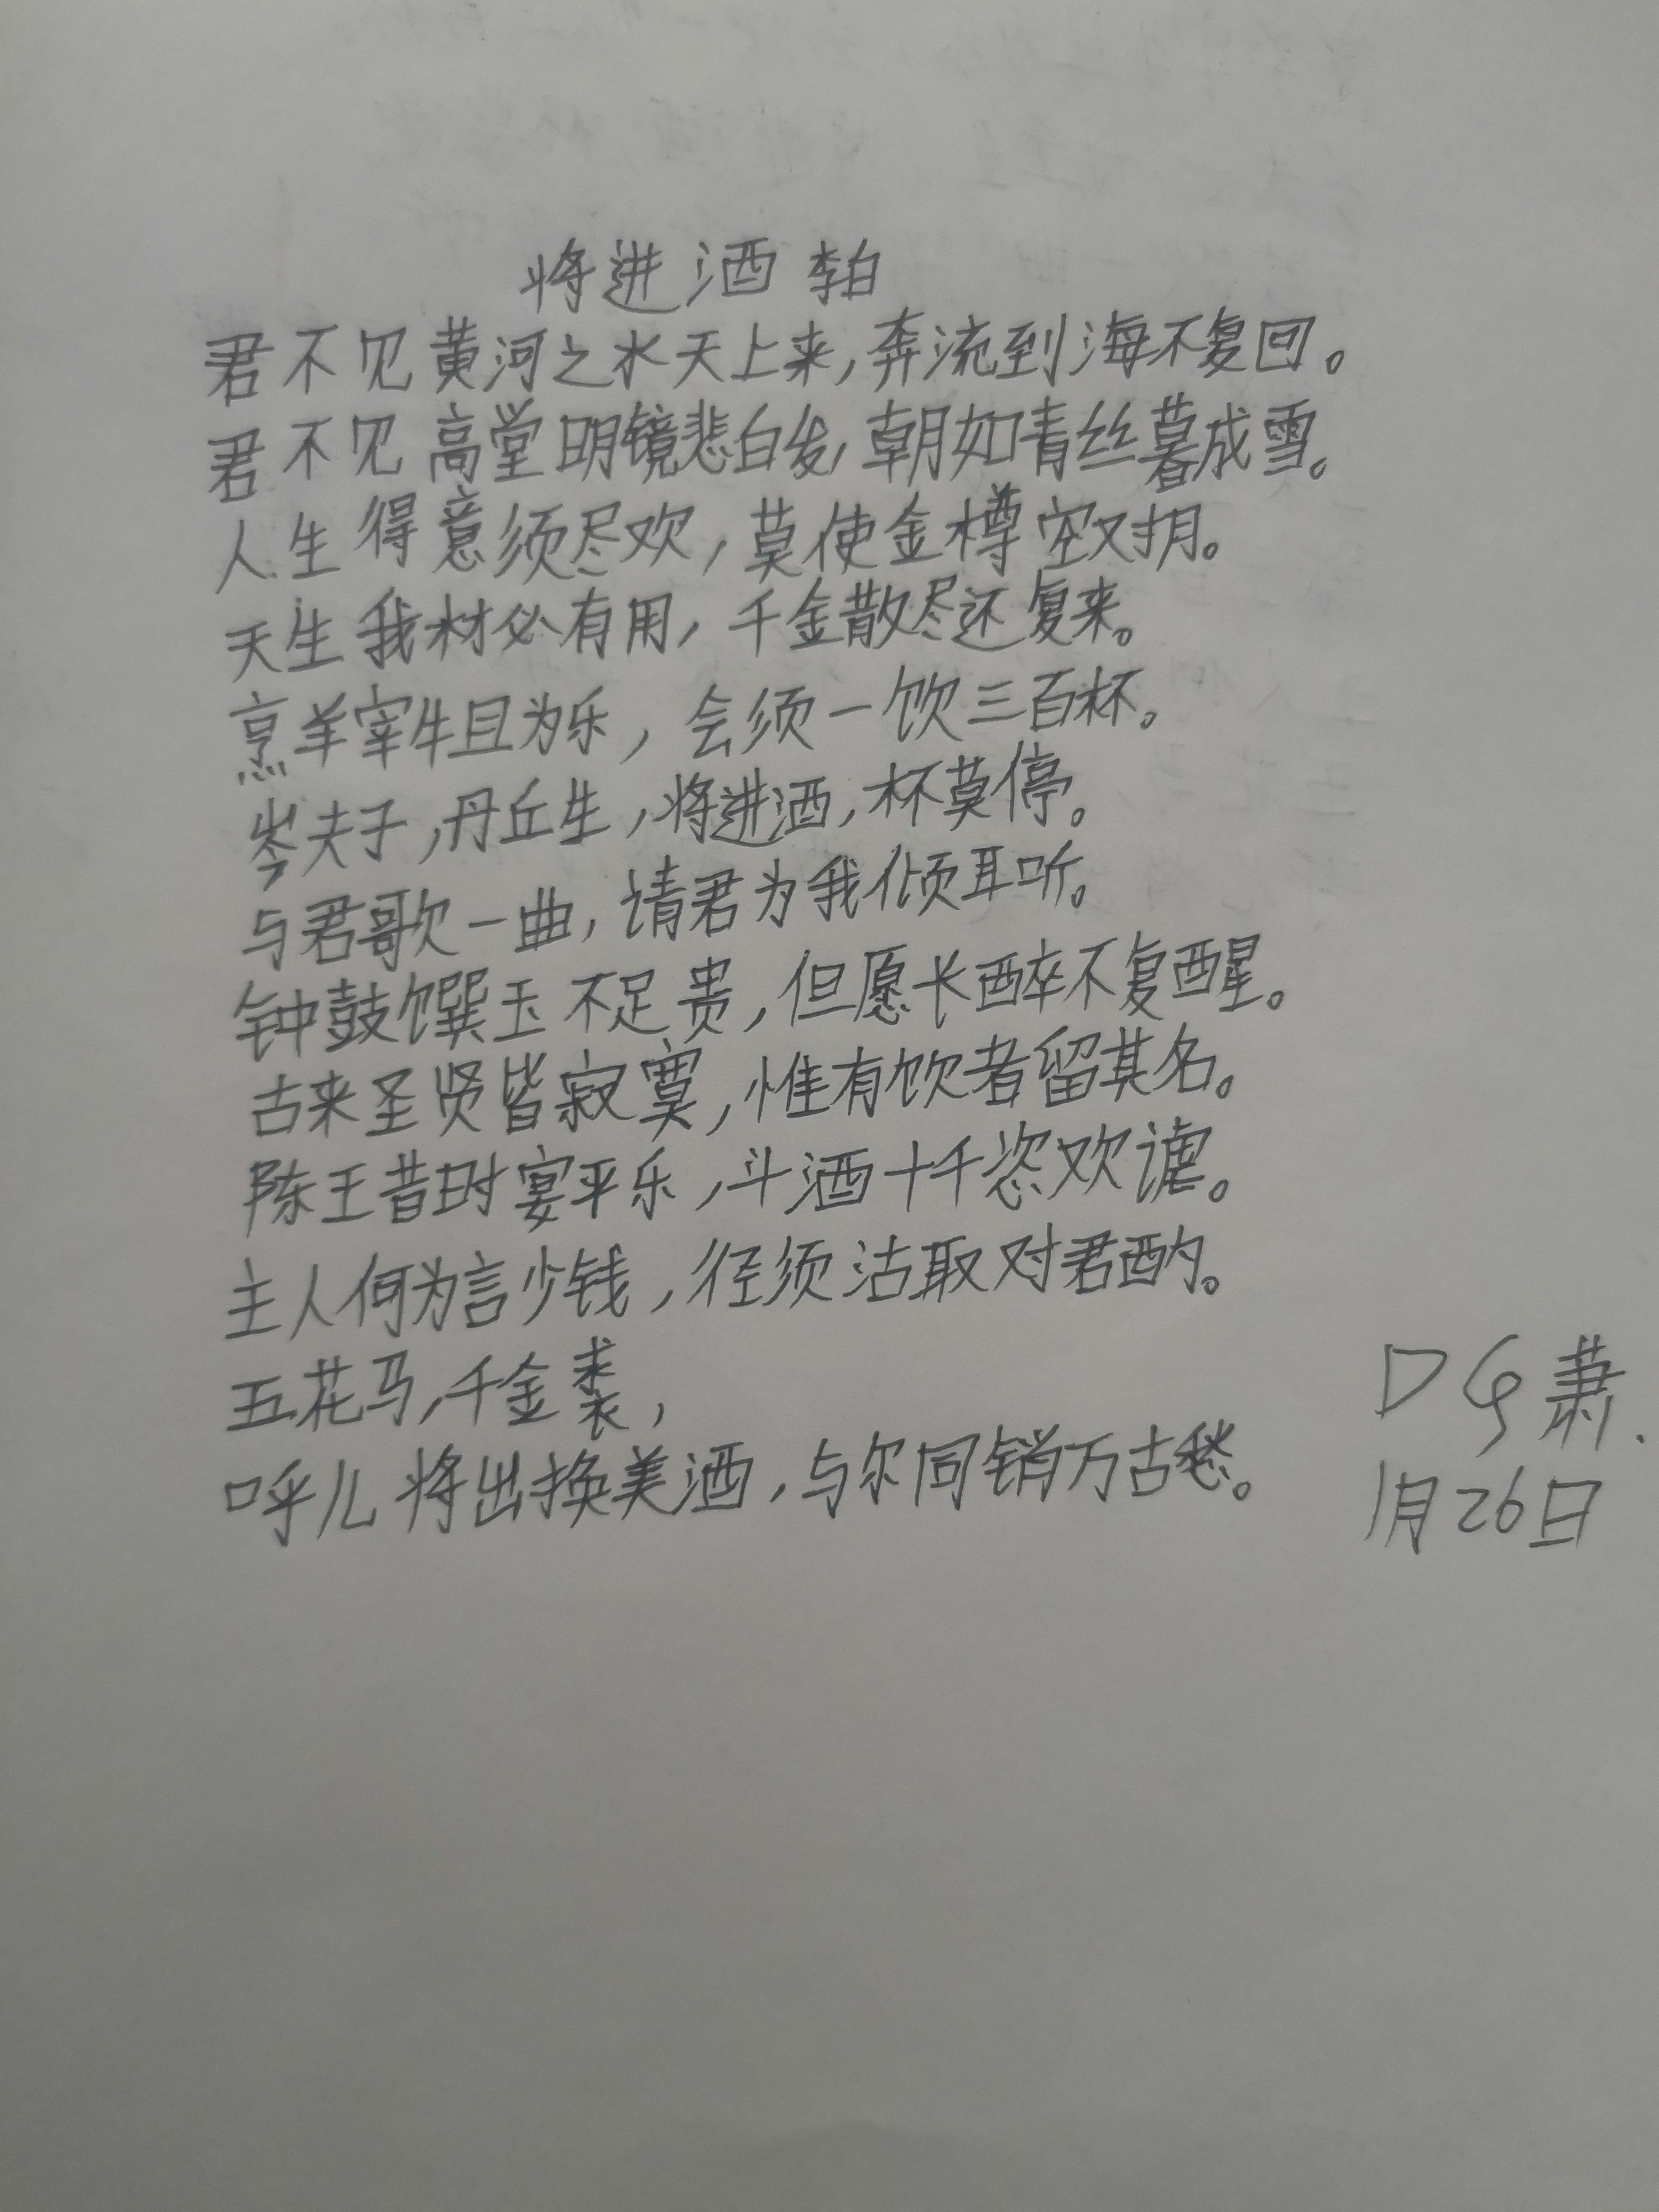 将进酒 李白
君不见黄河之水天上来,奔流到海不复回。
君不见高堂明镜悲白发,朝如青丝暮成雪。
人生得意须尽欢,莫使金樽空对月。
天生我材必有用,千金散尽还复来。
烹羊宰牛且为乐,会须一饮三百杯。
岑夫子,丹丘生,将进酒,杯莫停。
与君歌一曲,请君为我倾耳听。
钟鼓馔玉不足贵,但愿长醉不复醒。
古来圣贤皆寂寞,惟有饮者留其名。
陈王昔时宴平乐,斗酒十千恣欢谑。
主人何为言少钱,径须沽取对君酌。
五花马,千金裘,
呼儿将出换美酒,与尔同销万古愁。
萧.
1月26日